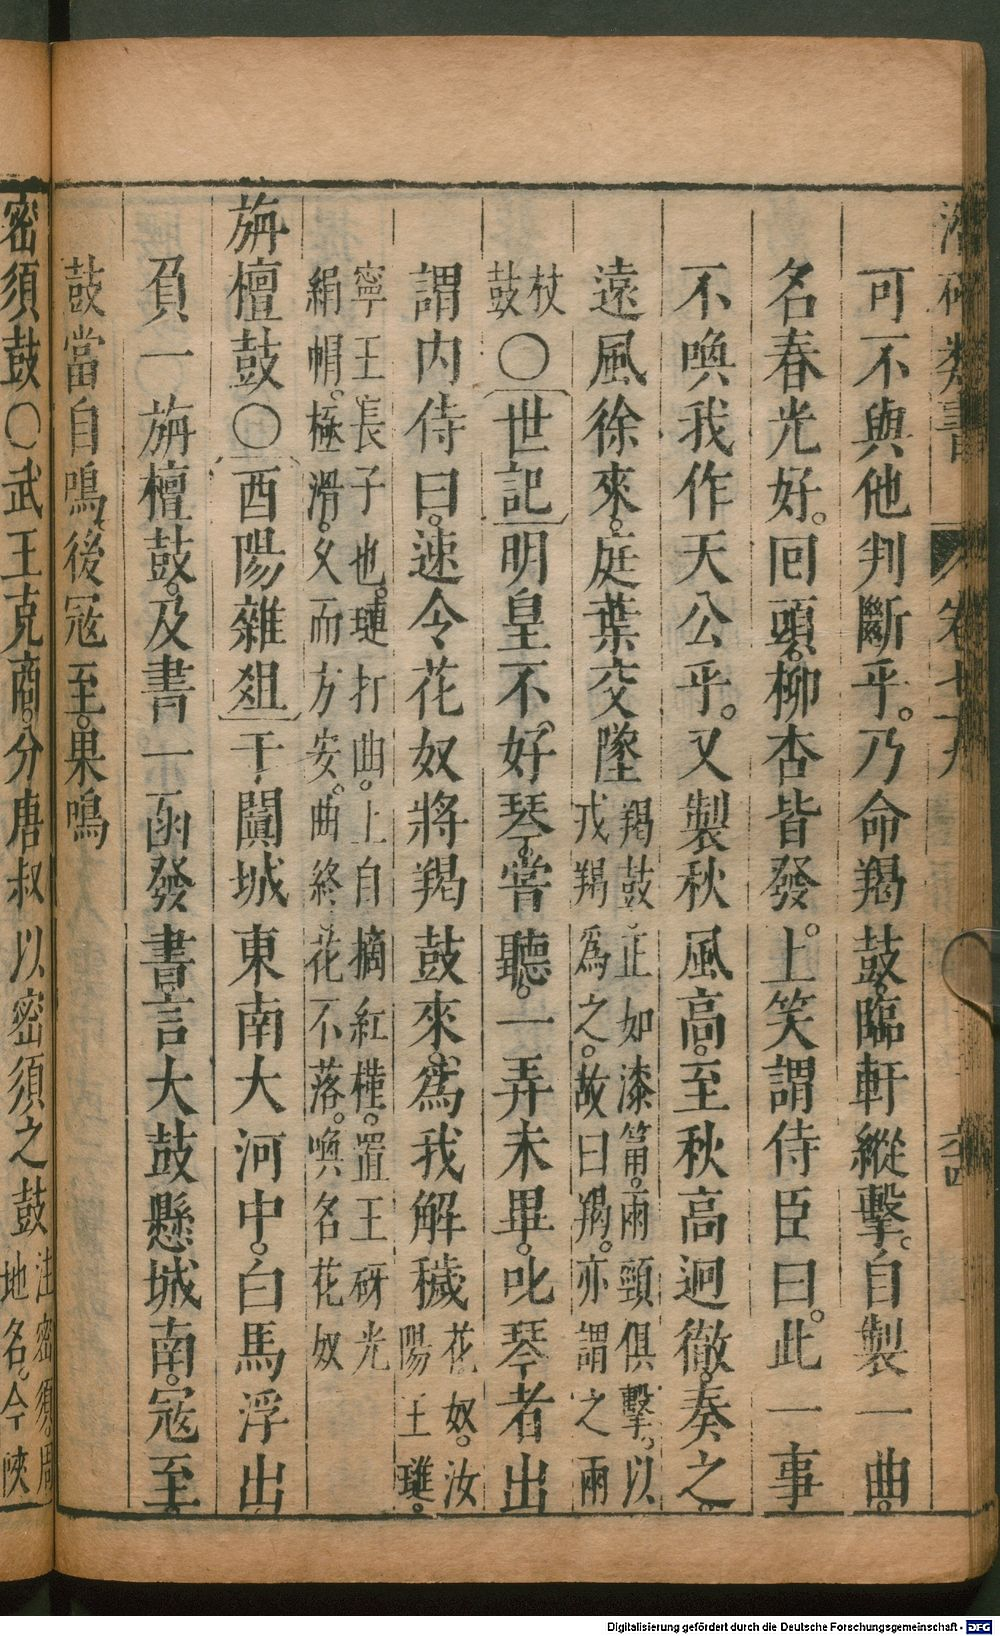 潛確類書 卷七十九 六四
可不與他判斷乎。乃命羯鼓。臨軒縱擊。自製一曲。
名春光好。囘頭。柳杏皆發。上笑謂侍臣曰。此一事
不喚我作天公乎。又製秋風高。至秋高迥徹。奏之。
遠風徐來。庭葉交墜
羯鼓。正如漆筩。兩頭俱擊。以
戎羯爲之。故曰羯。亦謂之兩
杖
鼓
〇世記明皇不好琴。嘗聽。一弄未畢。叱琴者出
謂内侍曰。速令花奴將羯鼓來。爲我解穢
花奴。汝
陽王璡。
寧王長子也。璡打曲。上自摘紅槿。置王砑光
絹帽。極滑。乆而方安。曲終。花不落。喚名花奴
旃檀鼓〇酉陽雜俎于闐城東南大河中。白馬浮出
負一旃檀鼓。及書一函發書。言大鼓懸城南。冦至。
鼓當自鳴。後冦至。果鳴
密須鼓〇武王克商。分唐叔以密須之鼓
注密須。周
地名。今陜
Digitalisierung gefördert durch die Deutsche Forschungsgemeinschaft - DFG